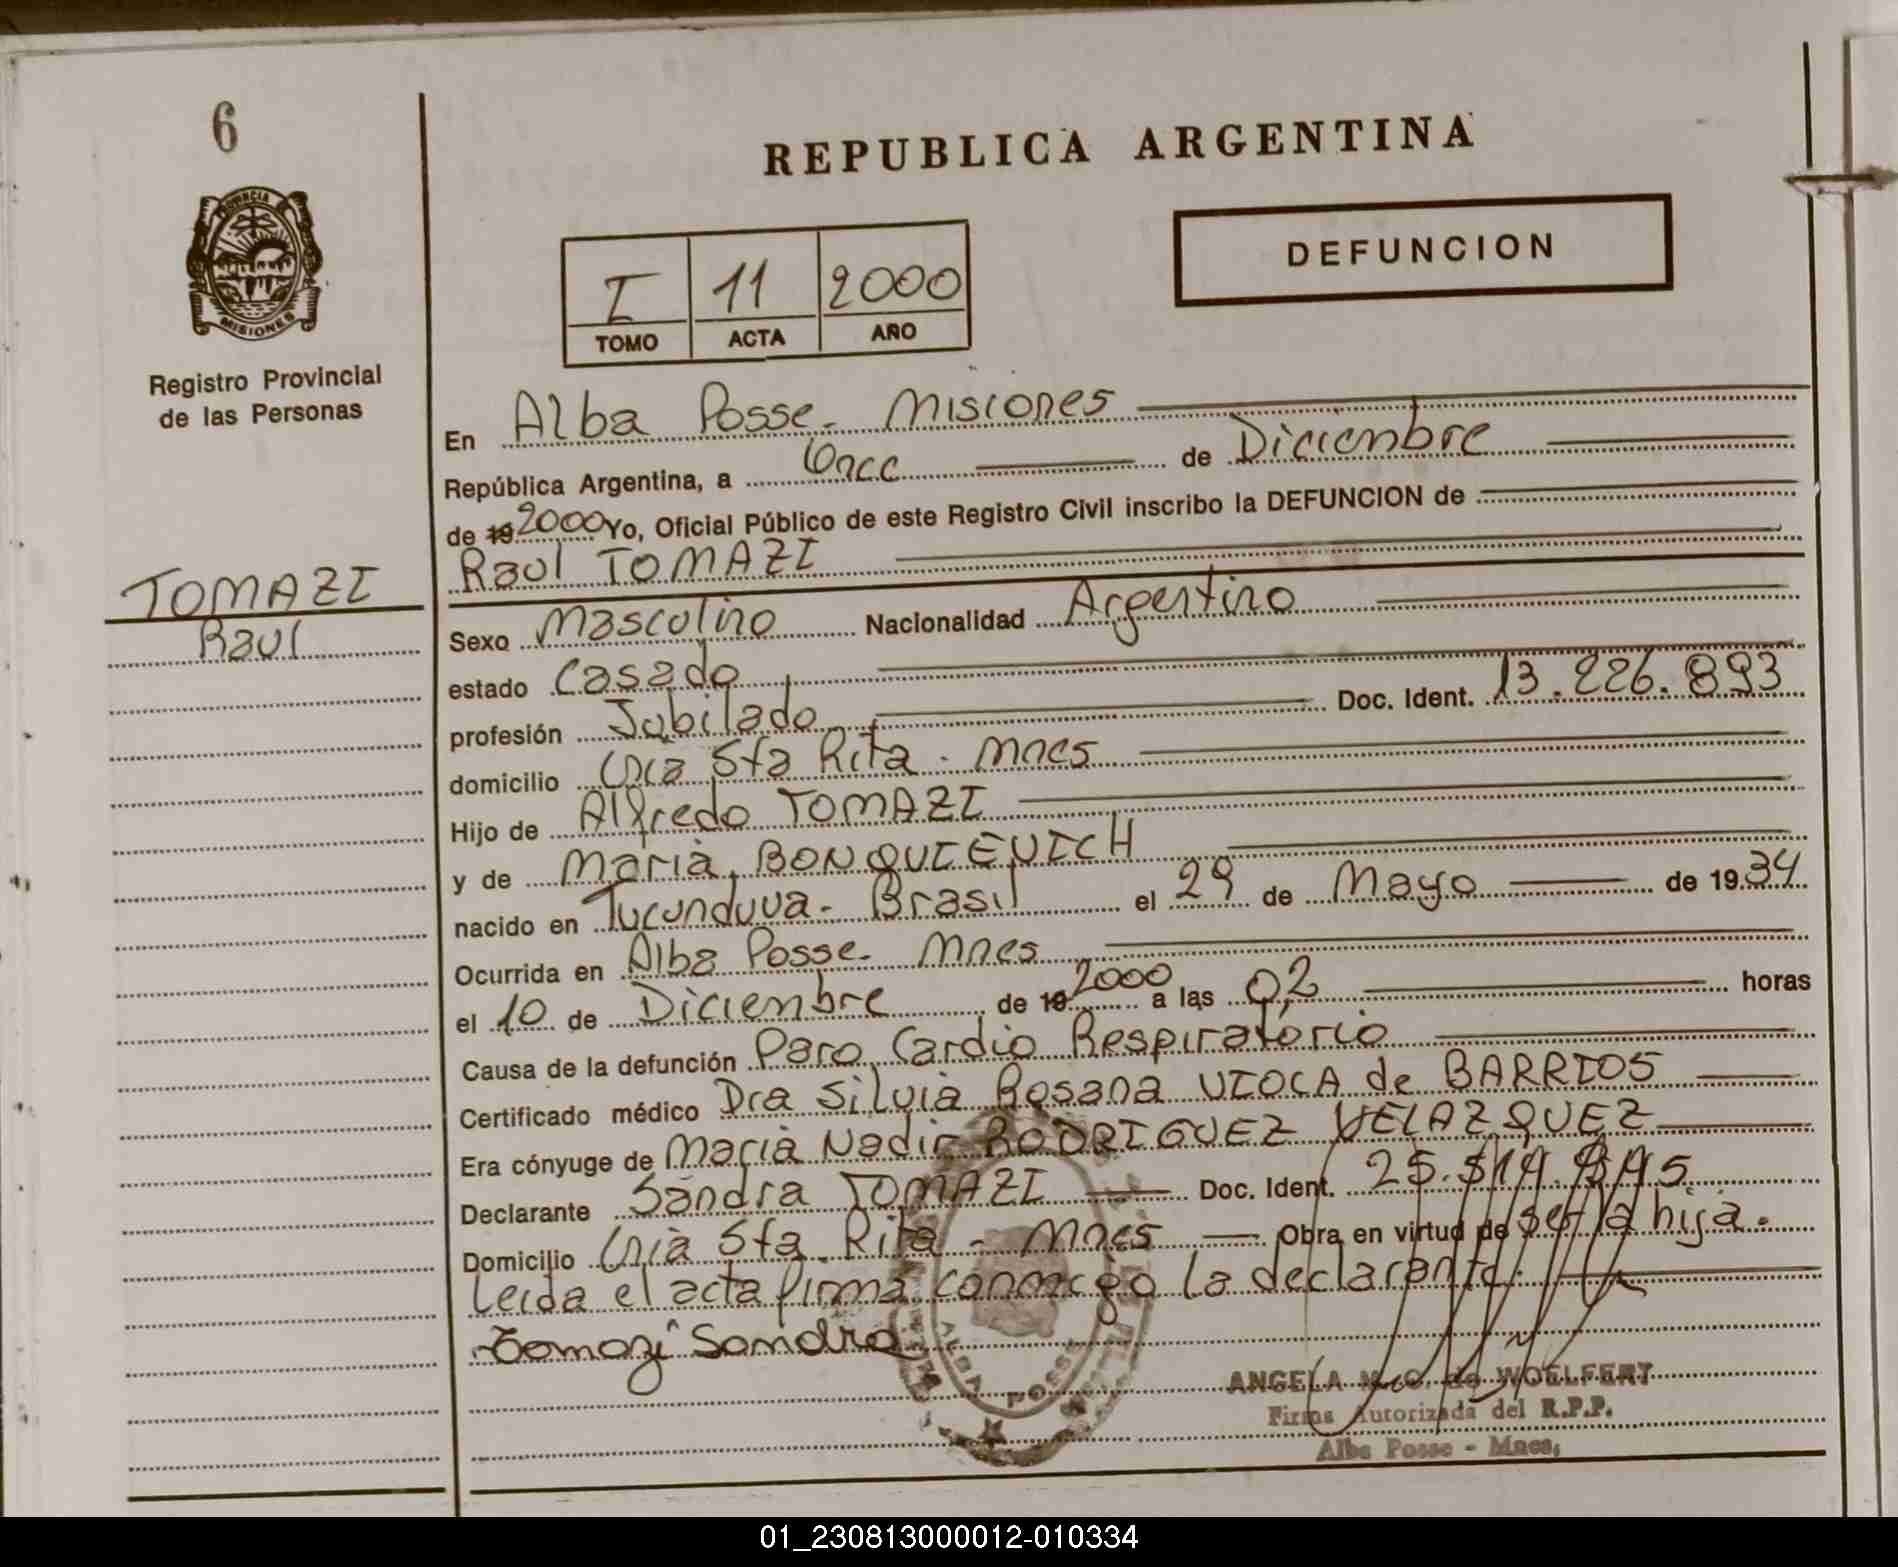 6
REPUBLICA ARGENTINA
DEFUNCION
PROVINCIA DE
MISIONES
I 11 2000
TOMO ACTA AÑO
Registro Provincial
de las Personas
En Alba Posse - Misiones
República Argentina, a Once de Diciembre
de 19 2000 Yo, Oficial Público de este Registro Civil inscribo la DEFUNCION de
Raul TOMAZI
TOMAZI
Raul
Sexo Masculino Nacionalidad Argentino
estado Casado
profesión Jubilado Doc. Ident. 13.226.893
domicilio Cnia Sta Rita - Mnes
Hijo de Alfredo TOMAZI
y de Maria BONQUIEVICH
nacido en Tucunduva - Brasil el 29 de Mayo de 19 34
Ocurrida en Alba Posse - Mnes
el 10 de Diciembre de 19 2000 a las 02 horas
Causa de la defunción Paro Cardio Respiratorio
Certificado médico Dra Silvia Rosana VIOCA de BARRIOS
Era cónyuge de Maria Nadir RODRIGUEZ VELAZQUEZ
Declarante Sandra TOMAZI Doc. Ident. 25.
Domicilio Cnia Sta Rita - Mnes Obra en virtud de ser la hija.
Leida el acta firma conmigo la declarante.
Tomazi Sandra
ALBA POSSE
ANGELA M. C. de WOELFERT
Firma Autorizada del R.P.P.
Alba Posse - Mnes,
01_230813000012-010334